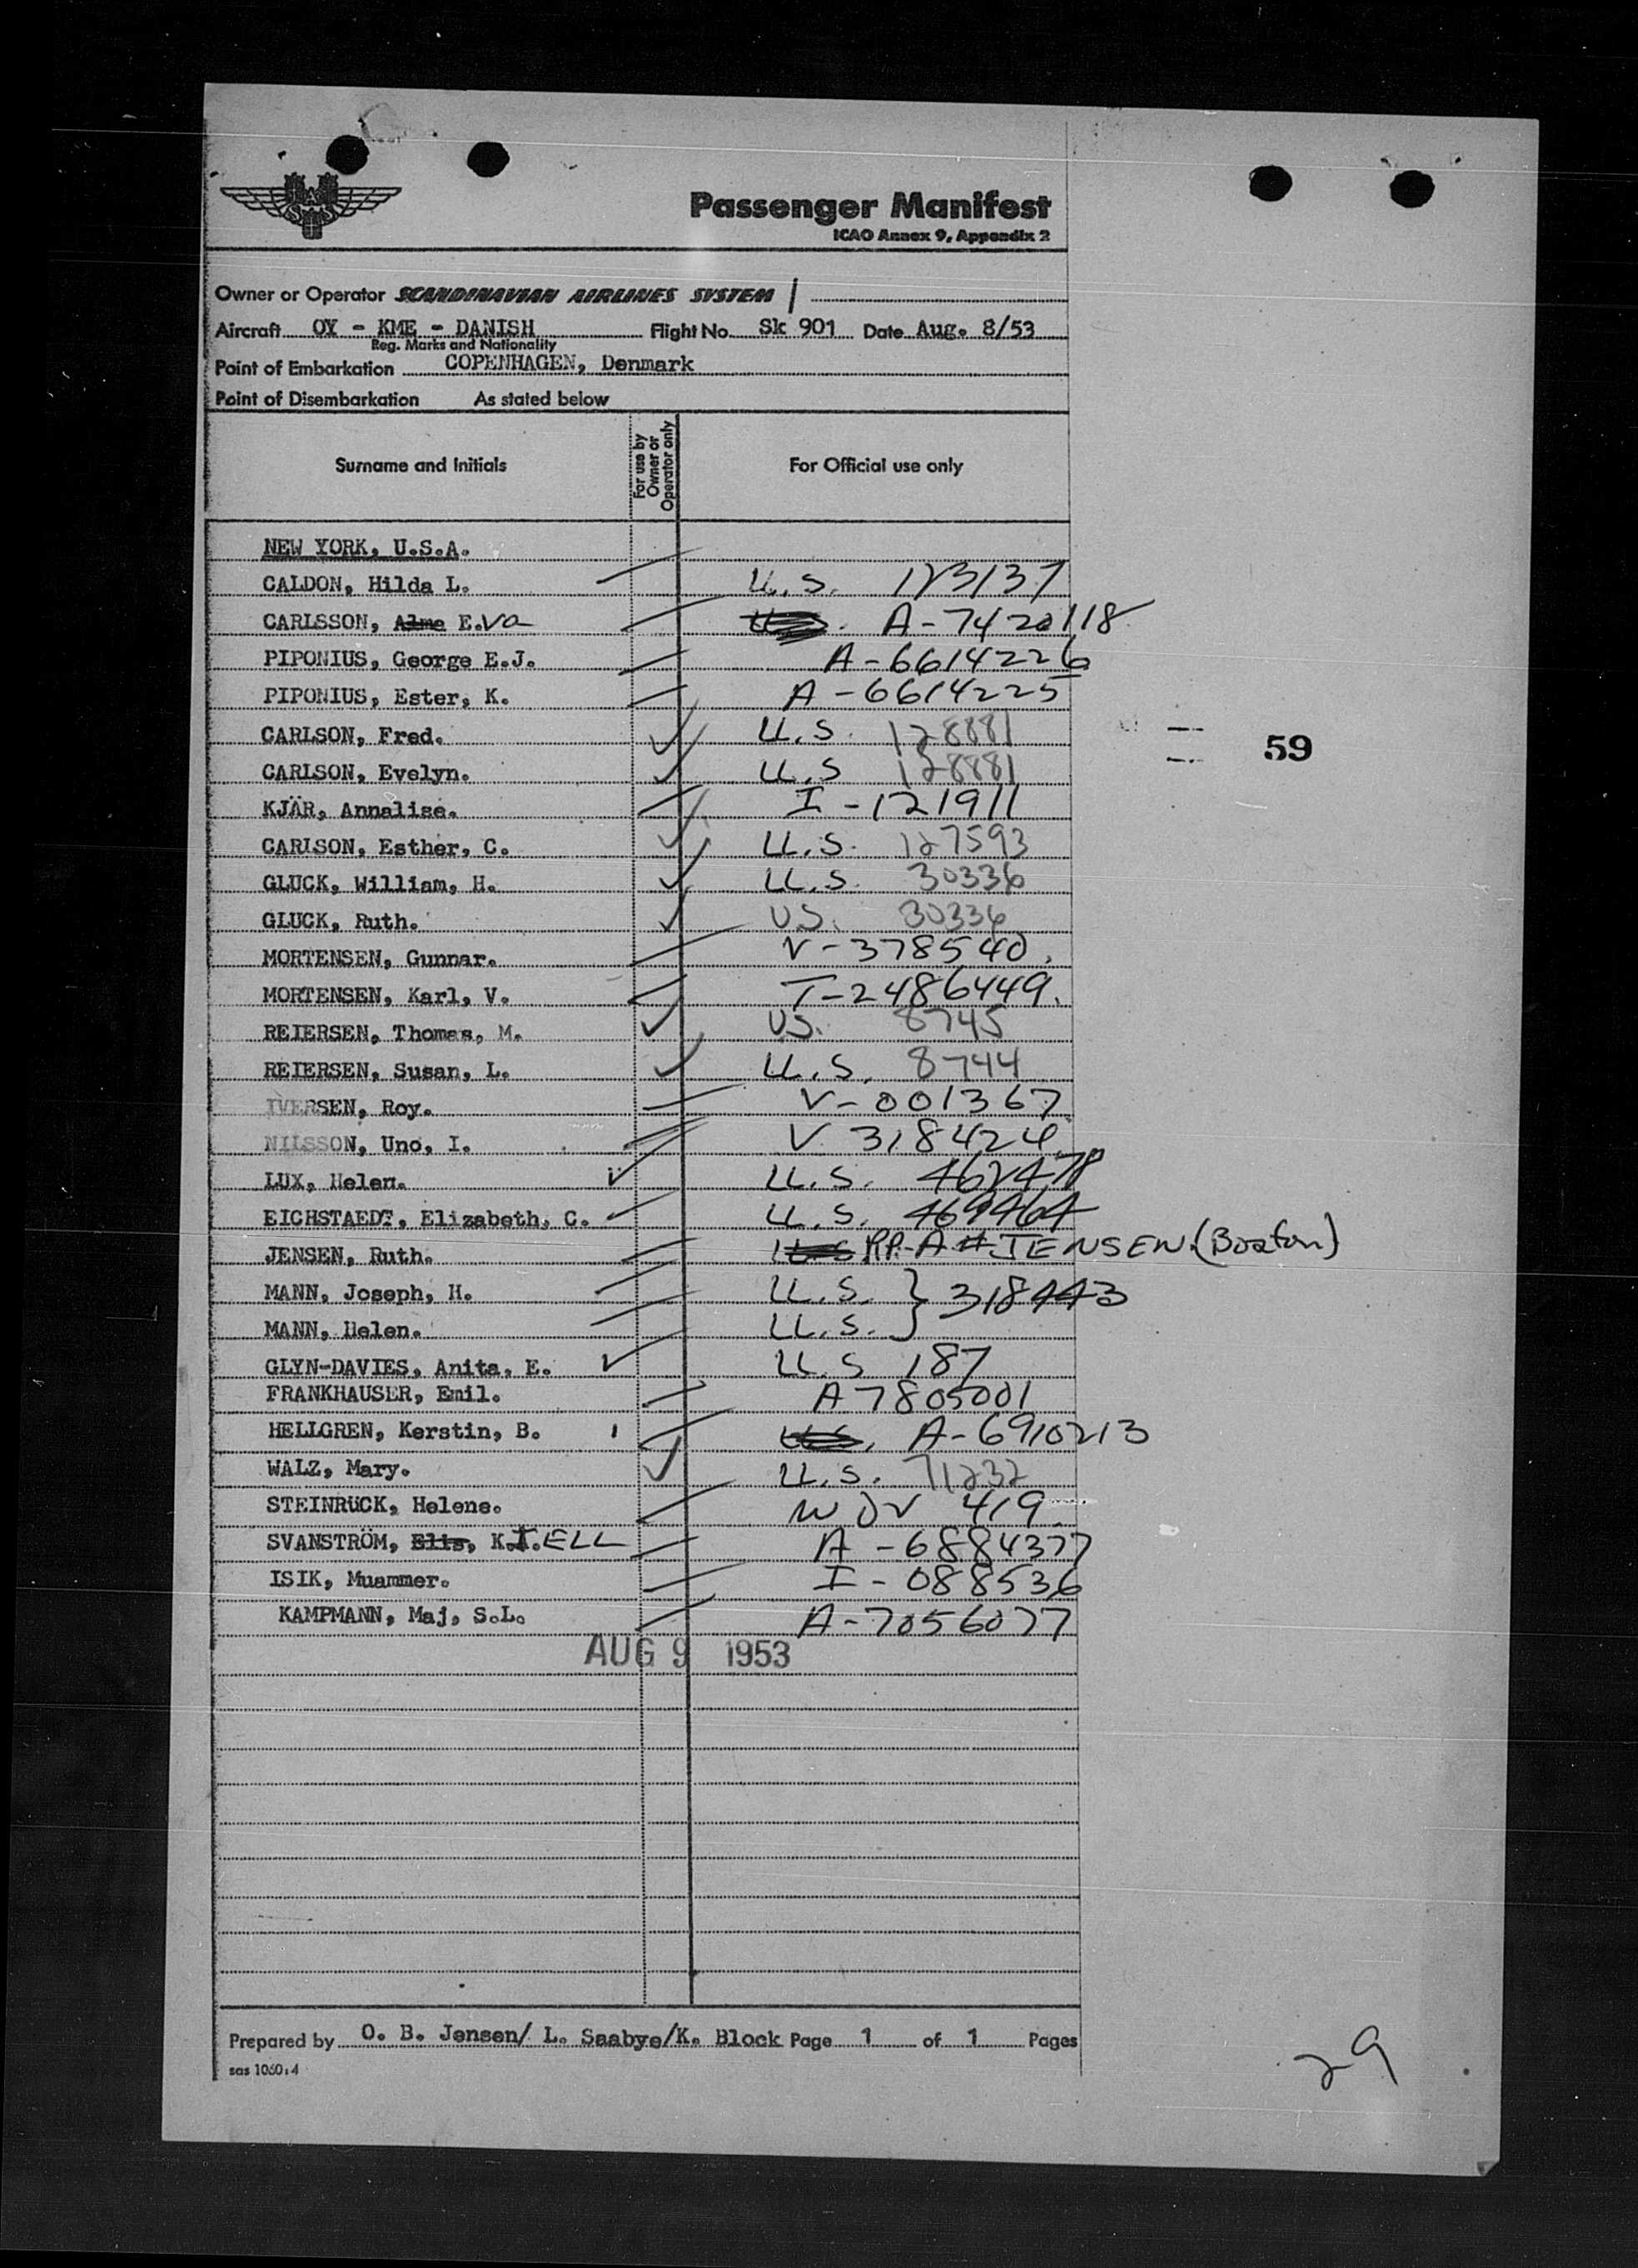 SAS
Passenger Manifest
ICAO Annex 9, Appendix 2
Owner or Operator SCANDINAVIAN AIRLINES SYSTEM
Aircraft OY - KME - DANISH Flight No. Sk 901 Date Aug. 8/53
Reg. Marks and Nationality
Point of Embarkation COPENHAGEN, Denmark
Point of Disembarkation As stated below
Surname and Initials For use by Owner or Operator only For Official use only
NEW YORK, U.S.A.
CALDON, Hilda L. U.S. 123137
CARLSSON, Alma E.va U.S. A-7420118
PIPONIUS, George E.J. A-6614226
PIPONIUS, Ester, K. A-6614225
CARLSON, Fred. U.S. 128881
59
CARLSON, Evelyn. U.S 128881
KJÄR, Annalise. I-121911
CARLSON, Esther, C. U.S. 127593
GLUCK, William, H. U.S. 30336
GLUCK, Ruth. U.S. 30336
MORTENSEN, Gunnar. V-378540.
MORTENSEN, Karl, V. T-2486449.
REIERSEN, Thomas, M. U.S. 8745
REIERSEN, Susan, L. U.S. 8744
IVERSEN, Roy. V-001367
NILSSON, Uno, I. V 318424
LUX, Helen. U.S. 462478
EICHSTAEDT, Elizabeth, C. U.S. 469464
JENSEN, Ruth. U.S RP-A# JENSEN (Boston)
MANN, Joseph, H. U.S. } 318443
MANN, Helen. U.S.
GLYN-DAVIES, Anita, E. U.S 187
FRANKHAUSER, Emil. A 7805001
HELLGREN, Kerstin, B. U.S. A-6910213
WALZ, Mary. U.S. 71232
STEINRÜCK, Helene. 419
SVANSTRÖM, Elis, K.J.ELL A-6884377
ISIK, Muammer. I-088536
KAMPMANN, Maj, S.L. A-7056077
AUG 9 1953
Prepared by O. B. Jensen/ L. Saabye/K. Block Page 1 of 1 Pages
sas 1060:4
29